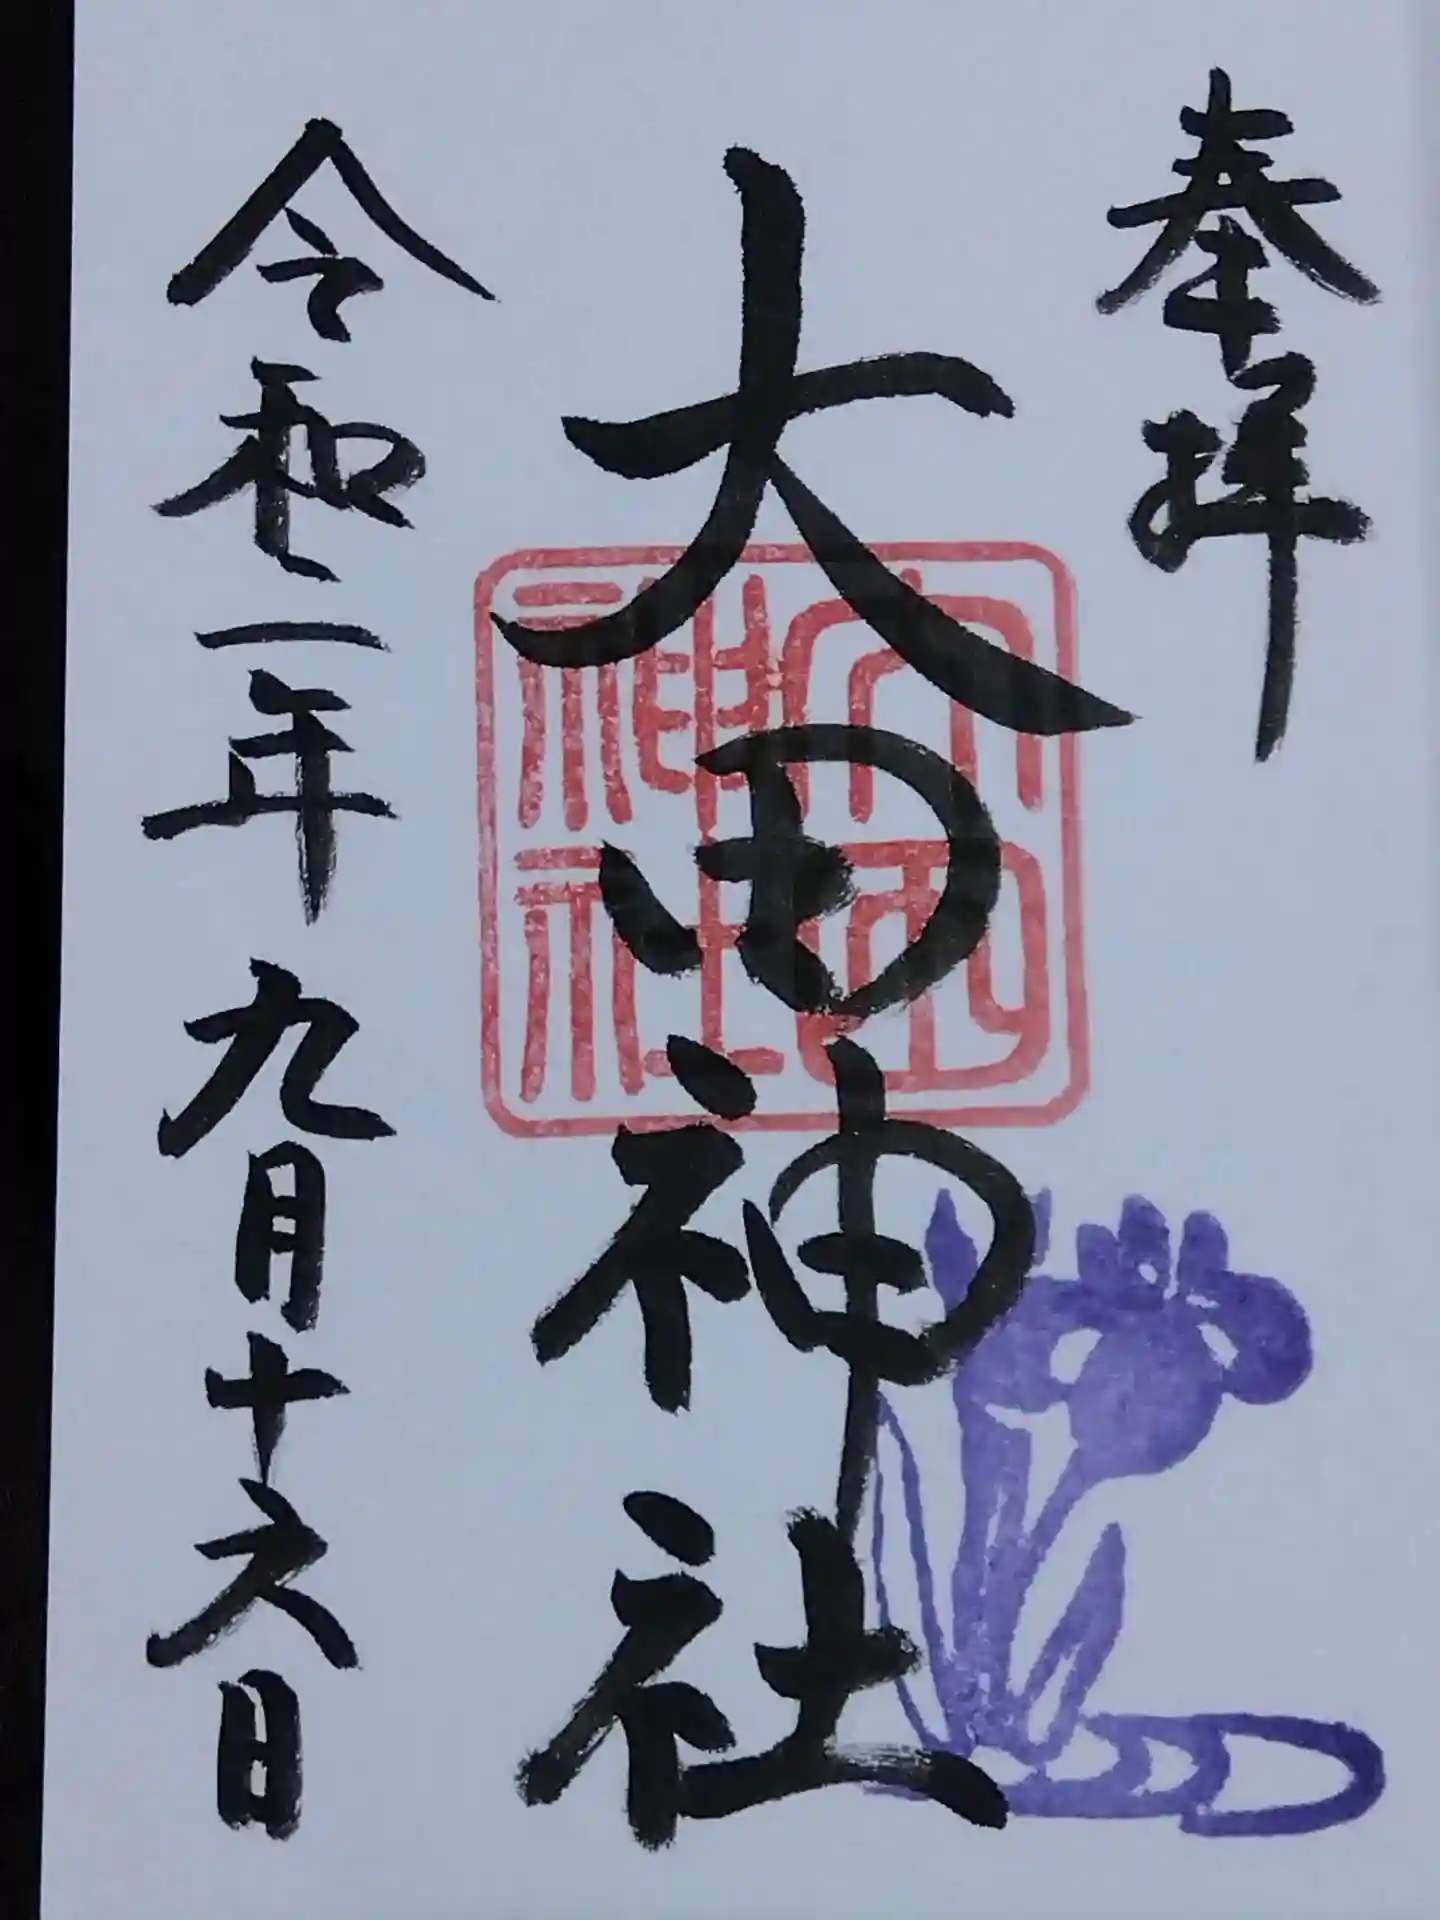 奉拝
大田神社
令和二年九月十六日
大田
神社